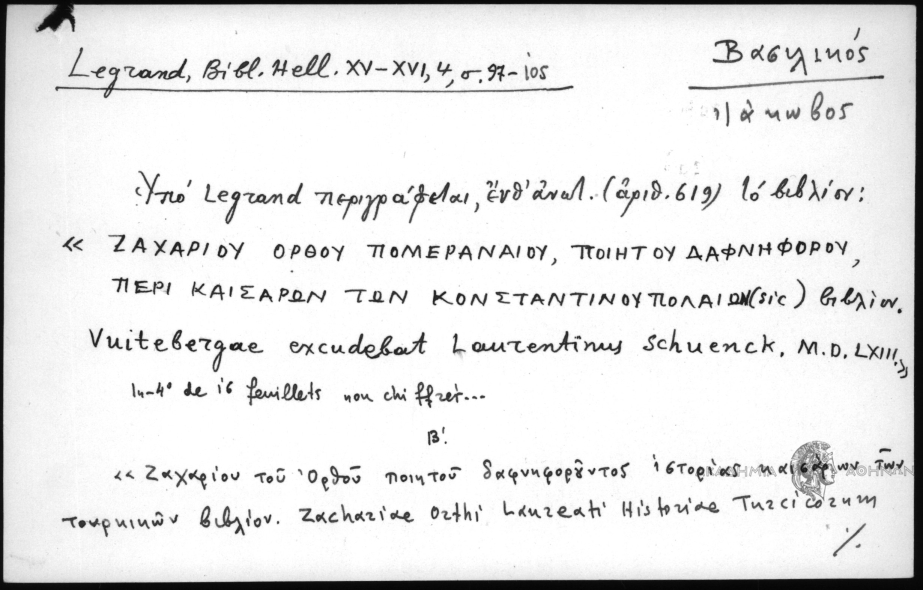 Legrand, Bibl. Hell. XV-XVI, 4, σ. 97-105
Βασιλικός
Ἰάκωβος
Ὑπό Legrand περιγράφεται, ἔνθ' ἀνωτ. (ἀριθ. 619) τό βιβλίον:
« ΖΑΧΑΡΙΟΥ ΟΡΘΟΥ ΠΟΜΕΡΑΝΑΙΟΥ, ΠΟΙΗΤΟΥ ΔΑΦΝΗΦΟΡΟΥ,
ΠΕΡΙ ΚΑΙΣΑΡΩΝ ΤΩΝ ΚΟΝΣΤΑΝΤΙΝΟΥΠΟΛΑΙΩΝ (sic) βιβλίον.
Vuitebergae excudebat Laurentinus Schuenck. M.D.LXIII.»
In-4° de 16 feuillets non chiffrér...
Β'.
« Ζαχαρίου τοῦ Ὀρθοῦ ποιητοῦ δαφνηφοροῦντος ἱστορίας καισάρων τῶν
τουρκικῶν βιβλίον. Zachariae Orthi Laureati Historiae Turcicorum
./.
ΑΚΑΔΗΜΙΑ ΑΘΗΝΩΝ